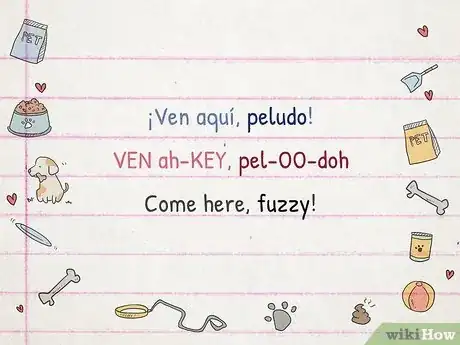 PET
¡Ven aquí, peludo!
PET
VEN ah-KEY, pel-OO-doh
Come here, fuzzy!
wikiHow